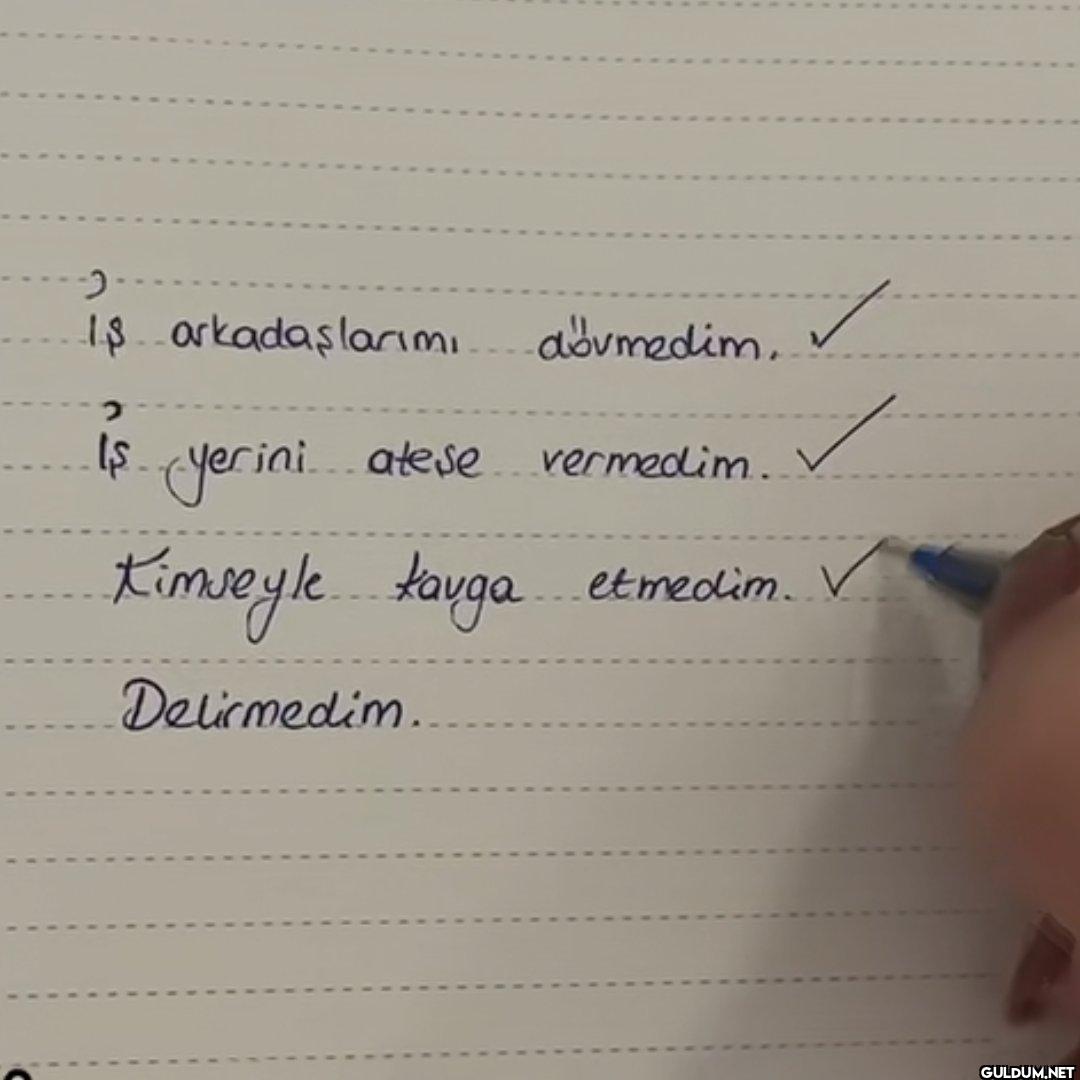 İş arkadaşlarımı dövmedim.
İş yerini ateşe vermedim.
Kimseyle kavga etmedim.
Delirmedim.
GULDUM.NET